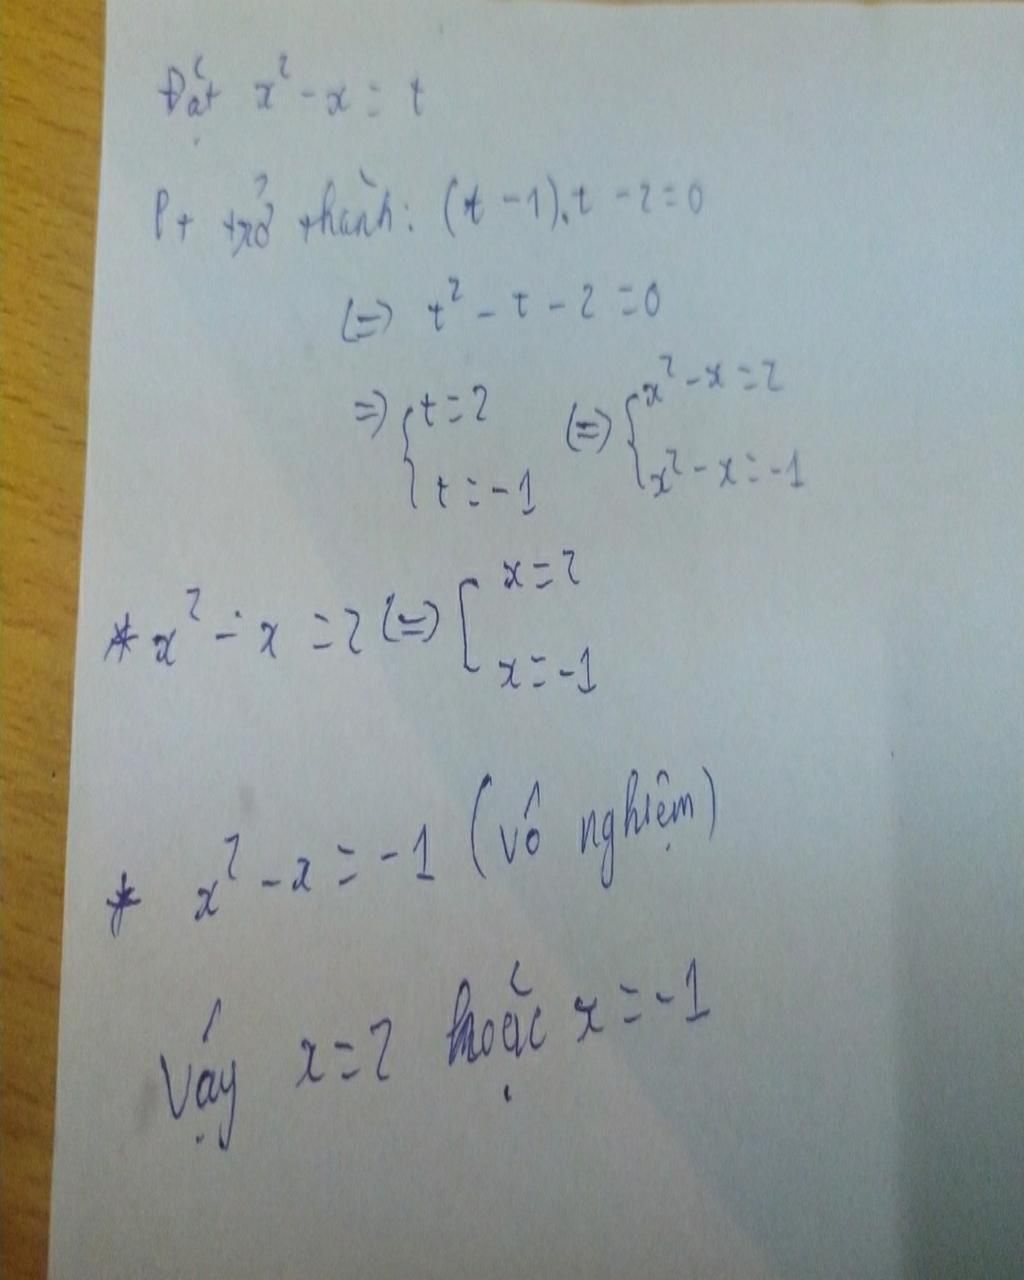 Đặt x² - x = t
Pt trở thành: (t - 1).t - 2 = 0
(=) t² - t - 2 = 0
=) { t = 2 (=) { x² - x = 2
t = -1 x² - x = -1
* x² - x = 2 (=) [ x = 2
x = -1
* x² - x = -1 (vô nghiệm)
Vậy x = 2 hoặc x = -1